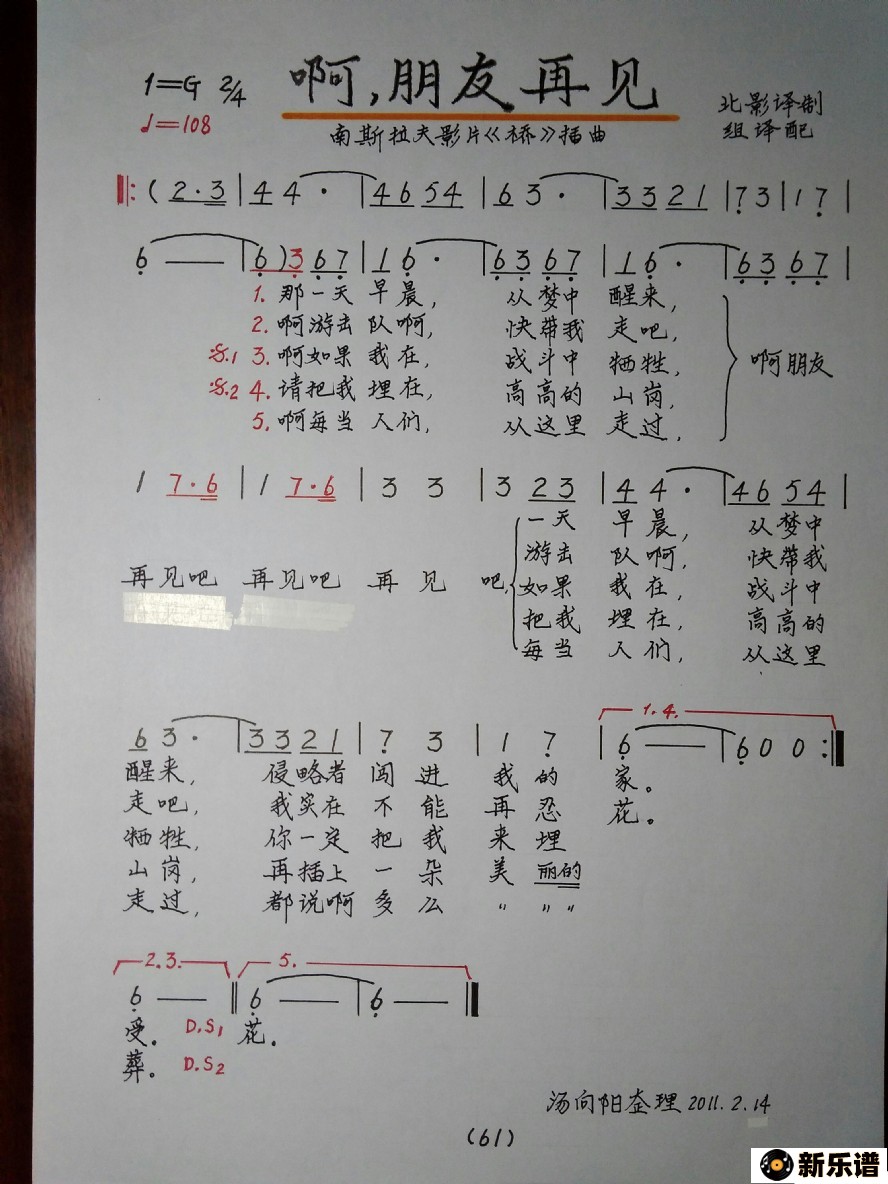 1=G 2/4 啊,朋友再见
♩=108
南斯拉夫影片《桥》插曲
北影译制
组译配
‖: ( 2·3 | 4 4 · | 46 54 | 6 3 · | 33 21 | 7 3 | 1 7 |
6 — | 6 ) 3 6 7 | 1 6 · | 63 67 | 1 6 · | 63 67 |
1. 那一天 早晨, 从梦中 醒来,
2. 啊游击 队啊, 快带我 走吧,
𝄋.1 3. 啊如果 我在, 战斗中 牺牲, 啊朋友
𝄋.2 4. 请把我 埋在, 高高的 山岗,
5. 啊每当 人们, 从这里 走过,
1 7·6 | 1 7·6 | 3 3 | 3 23 | 4 4 · | 46 54 |
再见吧 再见吧 再见 吧,
一天 早晨, 从梦中
游击 队啊, 快带我
如果 我在, 战斗中
把我 埋在, 高高的
每当 人们, 从这里
1. 4.
6 3 · | 33 21 | 7 3 | 1 7 | 6 — | 6 0 0 :‖
醒来, 侵略者 闯进 我的 家。
走吧, 我实在 不能 再忍 花。
牺牲, 你一定 把我 来埋
山岗, 再插上 一朵 美 丽的
走过, 都说啊 多么 〃 〃 〃
2. 3. 5.
6 — ‖ 6 — | 6 — ‖
受。 D.S1 花。
葬。 D.S2
汤向阳整理 2011.2.14
(61)
新乐谱